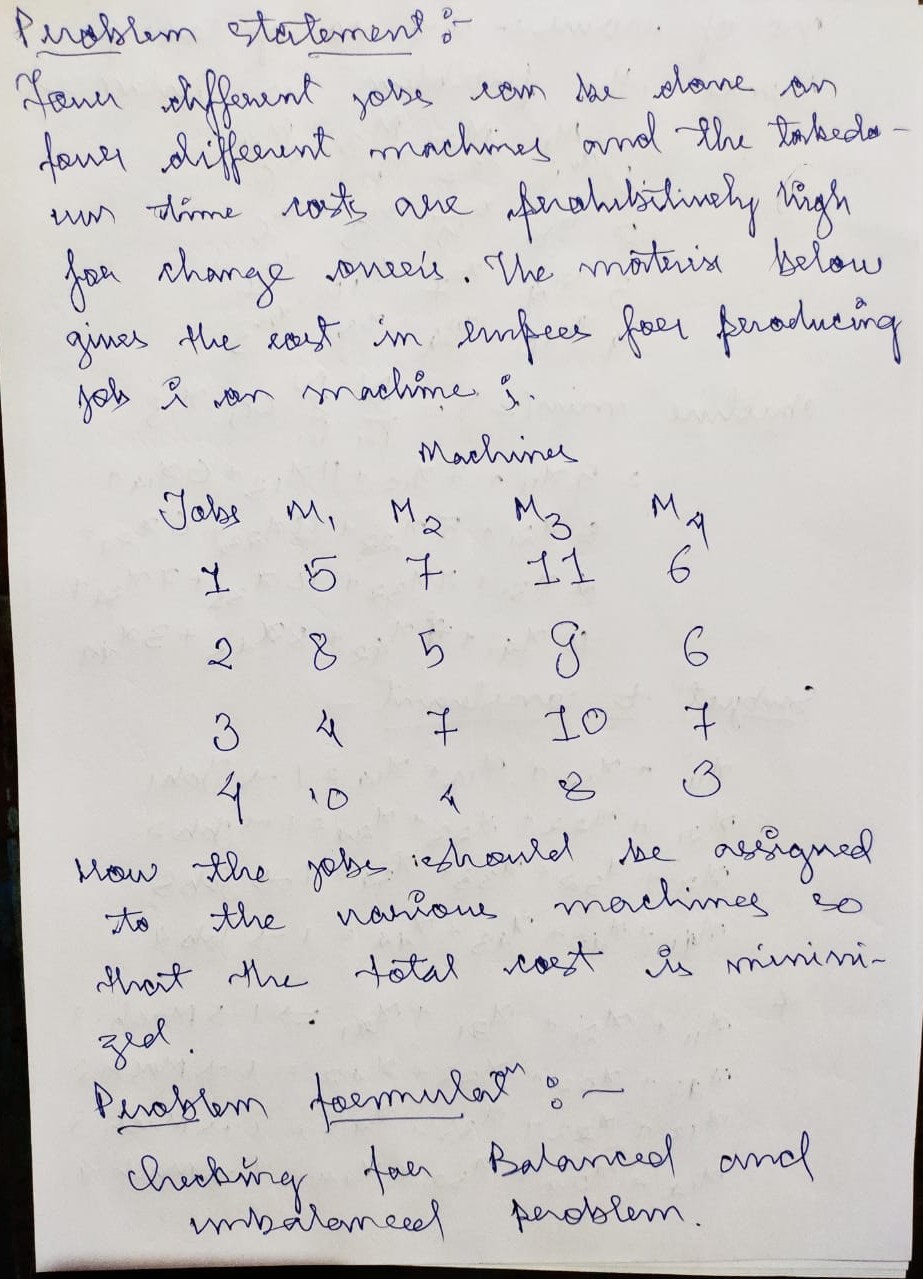 Problem statement :-
Four different jobs can be done on
four different machines and the takedo-
wn time costs are prohibitively high
for change overs. The matrix below
gives the cost in rupees for producing
job i on machine j.
Machines
Jobs M1 M2 M3 M4
1 5 7 11 6
2 8 5 9 6
3 4 7 10 7
4 10 4 8 3
How the jobs should be assigned
to the various machines so
that the total cost is minimi-
zed.
Problem formulatn :-
Checking for Balanced and
unbalanced problem.